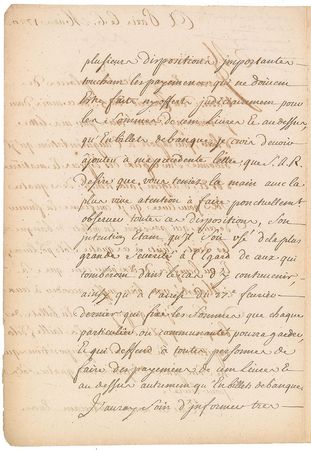 A Paris le 6.
plusieurs dispositions importantes
touchans les payemens qui ne doivent
estre faits ny offerts judiciairement pour
les Sommes de cent Livres Et au dessus,
qu'En billets de banque, Je crois devoir
ajouter a ma precedente lettre que S.A.R.
desire que vous teniez la main avec la
plus vive atention a faire ponctuellemt.
observer toutes ces dispositions, Son
intention Etant qu'Il soit usé de la plus
grande Severité a l'Egard de ceux qui
tomberont dans le cas d'y contrevenir
ainsy qu'a l'arrest du 27e. fevrier
dernier qui fixe les Sommes que chaque
particulier ou communauté pourra garder,
Et qui deffend a toutes personnes de
faire des payemens de cent Livres Et
au dessus autrement qu'En billets de banque,
J'auray Soin d'informer tres